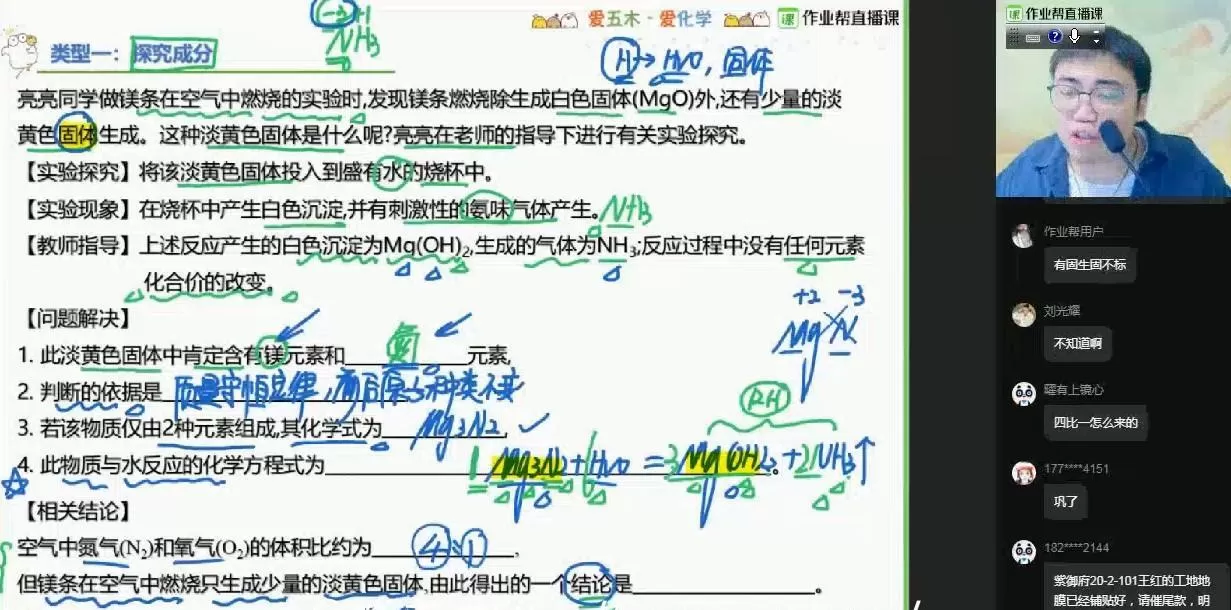 -3 +1
NH₃
爱五木 - 爱化学
课 作业帮直播课
类型一：探究成分
H→H₂O, 固体
亮亮同学做镁条在空气中燃烧的实验时,发现镁条燃烧除生成白色固体(MgO)外,还有少量的淡
黄色固体生成。这种淡黄色固体是什么呢?亮亮在老师的指导下进行有关实验探究。
【实验探究】将该淡黄色固体投入到盛有水的烧杯中。
【实验现象】在烧杯中产生白色沉淀,并有刺激性的氨味气体产生。NH₃
【教师指导】上述反应产生的白色沉淀为Mg(OH)₂,生成的气体为NH₃;反应过程中没有任何元素
化合价的改变。
+2 -3
Mg N
【问题解决】
1. 此淡黄色固体中肯定含有镁元素和 氮 元素,
2. 判断的依据是 质量守恒定律,前后原子种类不变
3. 若该物质仅由2种元素组成,其化学式为 Mg3N2 ,
4. 此物质与水反应的化学方程式为 1 Mg3N2+6H₂O = 3Mg(OH)₂+2NH₃↑ 。
【相关结论】
空气中氮气(N₂)和氧气(O₂)的体积比约为 4:1 ,
但镁条在空气中燃烧只生成少量的淡黄色固体,由此得出的一个结论是 。
课 作业帮直播课
作业帮用户
有固生固不标
刘光耀
不知道啊
有上镜心
四比一怎么来的
177****4151
巩了
182****2144
紫御府20-2-101王红的工地地
膜已经铺贴好，请催尾款，明